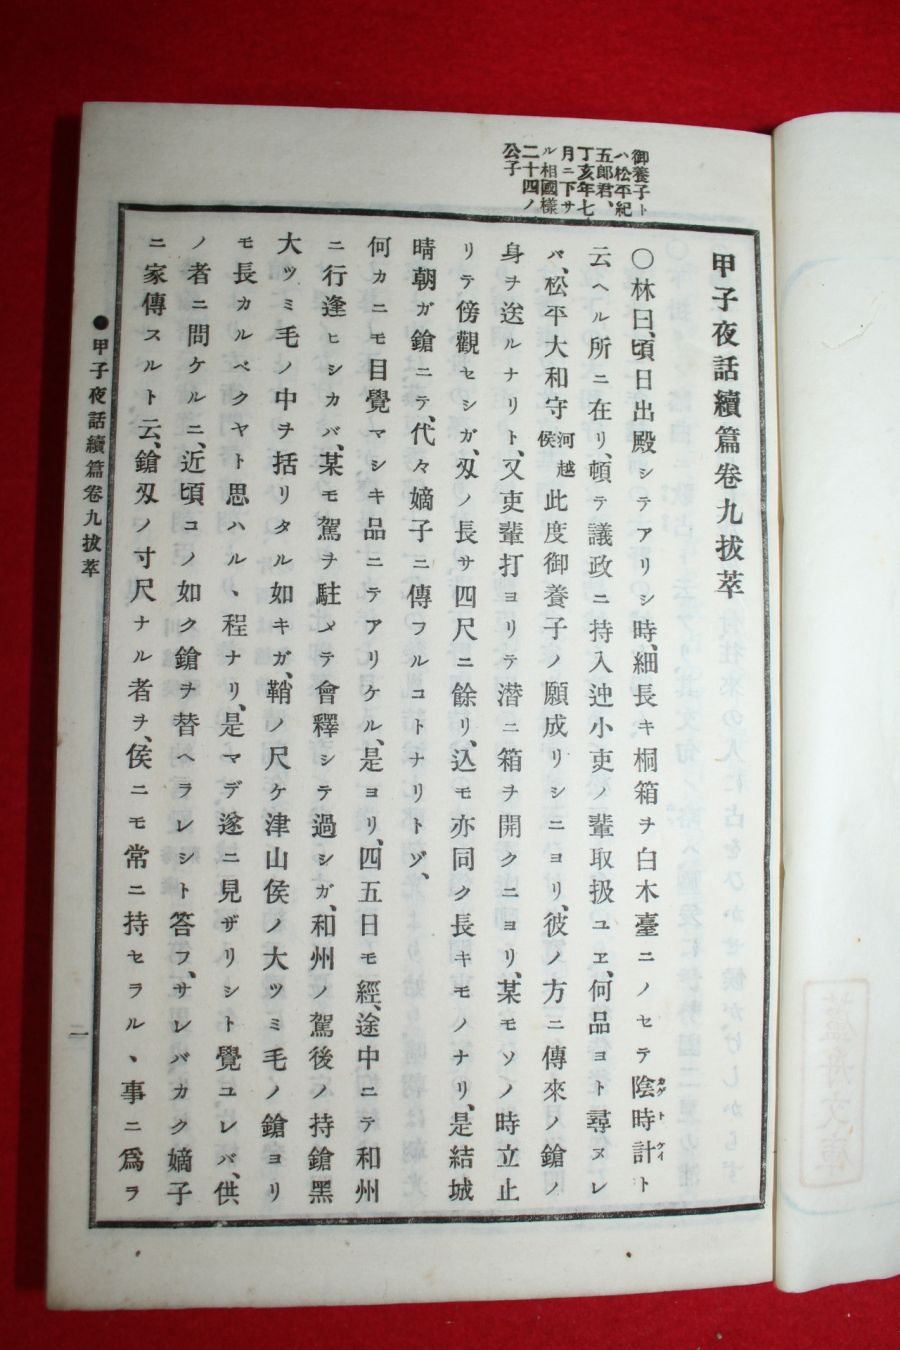 御養子ト
ハ松平紀
五郎君、
丁亥年七
月ニ下サ
ル相國樣
二十四ノ
公子
甲子夜話續篇卷九拔萃
〇林曰、頃日出殿シテアリシ時、細長キ桐箱ヲ白木臺ニノセテ陰時計ト
云ヘル所ニ在リ、頓テ議政ニ持入迚小吏ノ輩取扱ユヱ、何品ヨト尋ヌレ
バ、松平大和守河越侯此度御養子ノ願成リシニヨリ、彼ノ方ニ傳來ノ鎗ノ
身ヲ送ルナリト、又吏輩打ヨリテ潛ニ箱ヲ開クニヨリ、某モソノ時立止
リテ傍觀セシガ、刄ノ長サ四尺ニ餘リ、込モ亦同ク長キモノナリ、是結城
晴朝ガ鎗ニテ、代々嫡子ニ傳フルコトナリトゾ、
何カニモ目覺マシキ品ニテアリケル、是ヨリ、四五日モ經、途中ニテ和州
ニ行逢ヒシカバ、某モ駕ヲ駐メテ會釋シテ過シガ、和州ノ駕後ノ持鎗黑
大ツミ毛ノ中ヲ括リタル如キガ、鞘ノ尺ケ津山侯ノ大ツミ毛ノ鎗ヨリ
モ長カルベクヤト思ハル、程ナリ、是マデ遂ニ見ザリシト覺ユレバ、供
ノ者ニ問ケルニ、近頃コノ如ク鎗ヲ替ヘラレシト答フ、サレバカク嫡子
ニ家傳スルト云、鎗刄ノ寸尺ナル者ヲ、侯ニモ常ニ持セラル、事ニ爲ラ
●甲子夜話續篇卷九拔萃
一